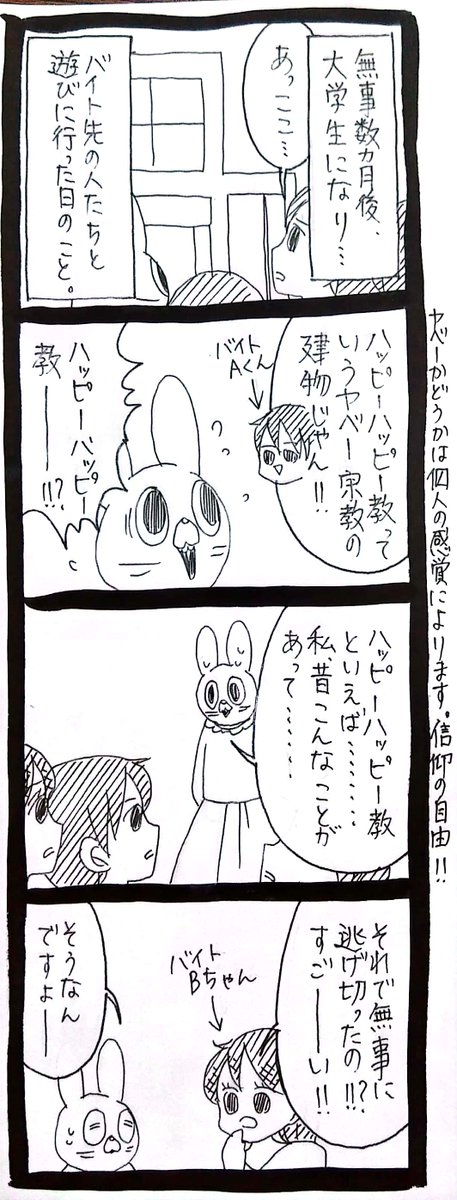 無事数カ月後、
大学生になり…
あっここ…
バイト先の人たちと
遊びに行った日のこと。
ハッピーハッピー教って
いうヤベー宗教の
建物じゃん!!
バイト
Aくん
ハッピーハッピー
教ーーー!!?
ヤベーかどうかは個人の感覚によります。信仰の自由!!
ハッピーハッピー教
といえば………
私、昔こんなことが
あって………
それで無事に
逃げ切ったの!!?
すごーーい!!
バイト
Bちゃん
そうなん
ですよー